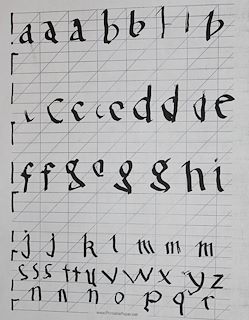 a a a b b l ı b
ı c c c c d d d e
f f g o g g h i
j j k l m m m
s s s t t u v v w x y z
n n n o p q r
www.PrintablePaper.net